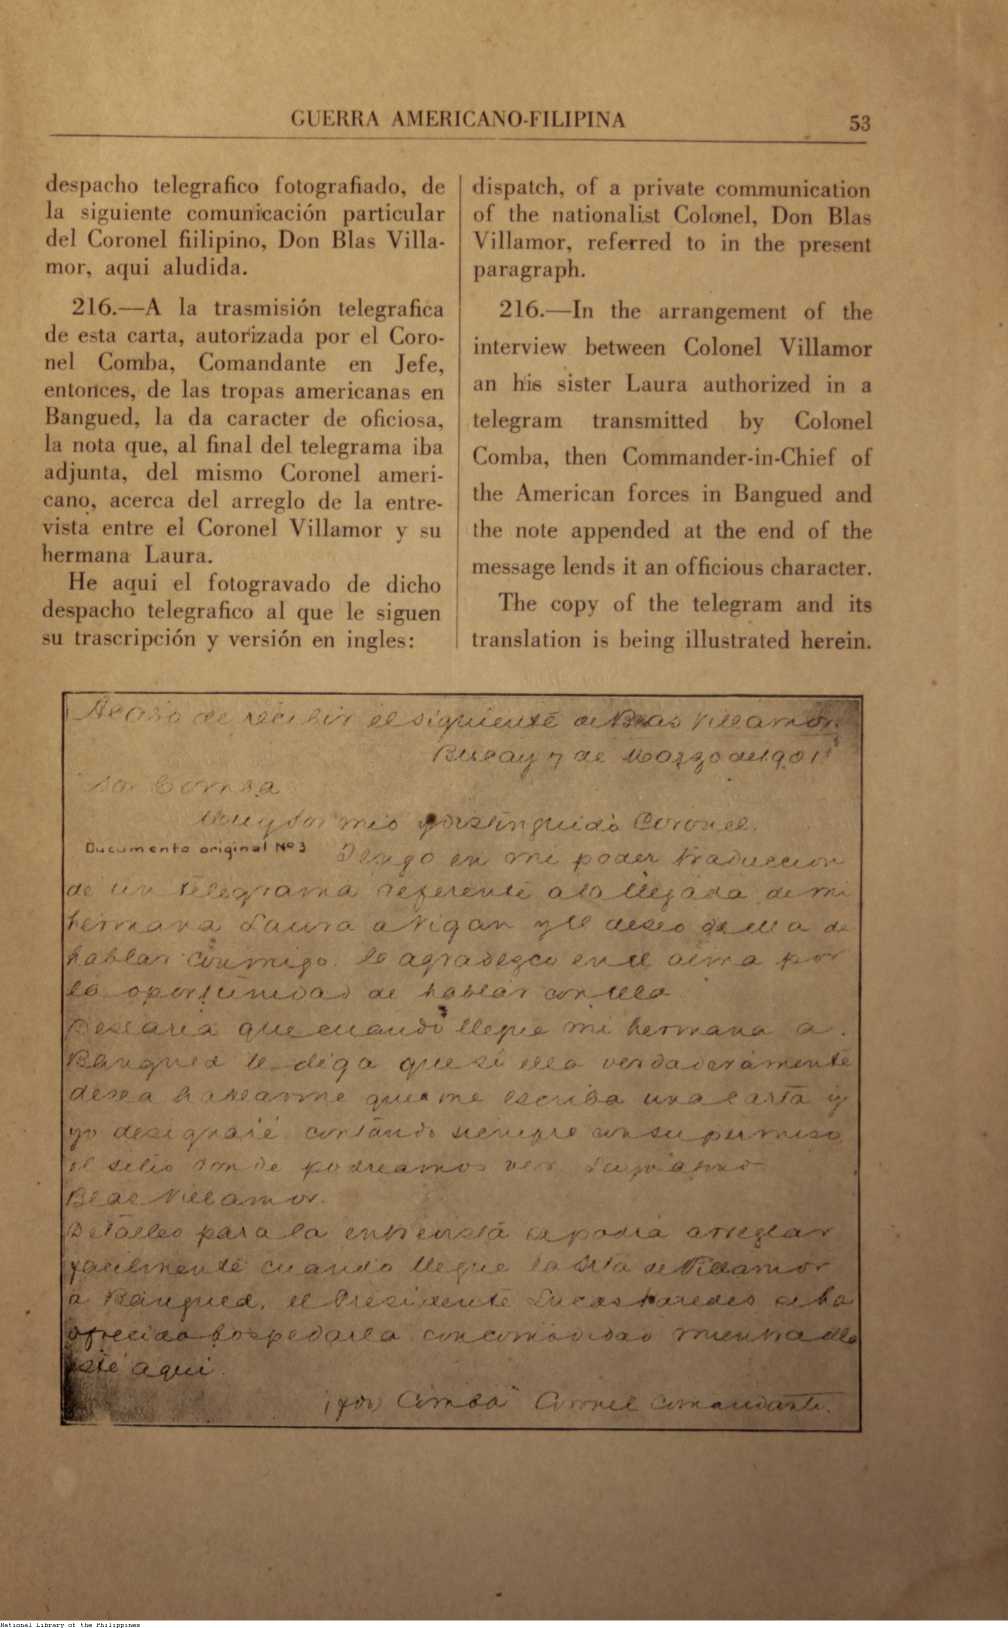 GUERRA AMERICANO-FILIPINA
53
despacho telegrafico fotografiado, de
la siguiente comunicación particular
del Coronel fiilipino, Don Blas Villa-
mor, aqui aludida.
216.—A la trasmisión telegrafica
de esta carta, autorizada por el Coro-
nel Comba, Comandante en Jefe,
entonces, de las tropas americanas en
Bangued, la da caracter de oficiosa,
la nota que, al final del telegrama iba
adjunta, del mismo Coronel ameri-
cano, acerca del arreglo de la entre-
vista entre el Coronel Villamor y su
hermana Laura.
He aqui el fotogravado de dicho
despacho telegrafico al que le siguen
su trascripción y versión en ingles:
dispatch, of a private communication
of the nationalist Colonel, Don Blas
Villamor, referred to in the present
paragraph.
216.—In the arrangement of the
interview between Colonel Villamor
an his sister Laura authorized in a
telegram transmitted by Colonel
Comba, then Commander-in-Chief of
the American forces in Bangued and
the note appended at the end of the
message lends it an officious character.
The copy of the telegram and its
translation is being illustrated herein.
Acabo de recibir el siguiente de Blas Villamor.
Bucay 7 de Marzo de 1901
Sor Comba
Muy Sor mio y distinguido Coronel.
Documento original Nº 3
Tengo en mi poder traduccion
de un telegrama referente a la llegada de mi
hermana Laura a Vigan y el deseo de ella de
hablar conmigo. le agradezco en el alma por
la oportunidad de hablar con ella
Desearia que cuando llegue mi hermana a
Bangued le diga que si ella verdaderamente
desea hablarme que me escriba una carta y
yo designaré contando siempre con su permiso
el sitio donde podreamos ver. Su
Blas Villamor.
Detalles para la entrevista se podra arreglar
facilmente cuando llegue la Srta de Villamor
a Bangued, el Presidente Lucas Paredes se ha
ofrecido hospedarla con comodidad mientra ella
esté aqui.
(por) Comba Coronel Comandante.
National Library of the Philippines